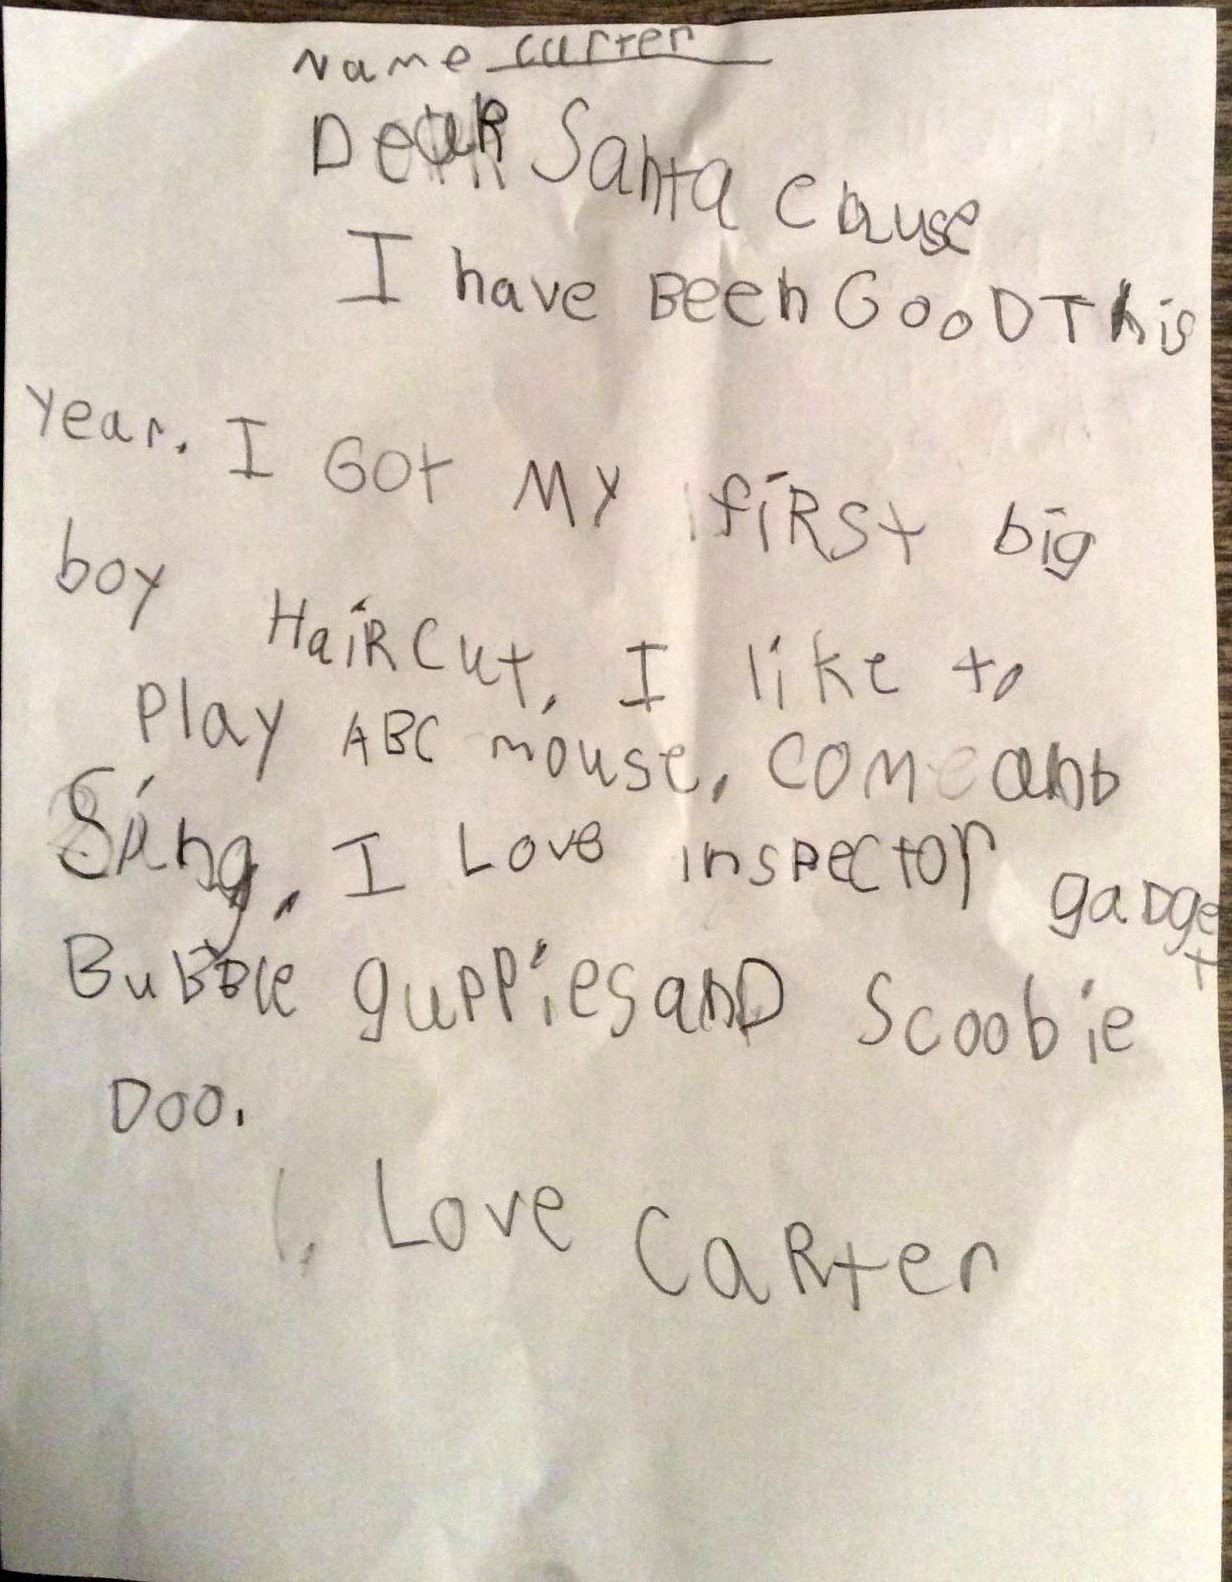 Name Carter
Dear Santa Clause
I have Been GooD This
year. I Got My fiRst big
boy HaiRCut. I like to
Play ABC mouse, Come anb
Sing. I Love inspector gaDget
BuBBle guppies anD Scoobie
Doo.
Love CaRter